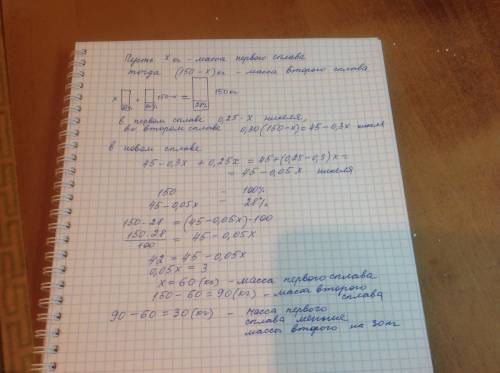 Пусть x кг - масса первого сплава
тогда (150-x) кг - масса второго сплава
x 25% + 30% 150-x = 28% 150 кг
в первом сплаве 0,25·x никеля,
во втором сплаве 0,30(150-x)=45-0,3x никеля
в новом сплаве
45-0,3x + 0,25x = 45+(0,25-0,3)x=
= 45-0,05x никеля
150 - 100%
45-0,05x - 28%
150·28 = (45-0,05x)·100
150·28/100 = 45-0,05x
42 = 45-0,05x
0,05x = 3
x = 60 (кг) - масса первого сплава
150-60=90(кг) - масса второго сплава
90-60=30(кг) - масса первого
сплава меньше
массы второго на 30 кг